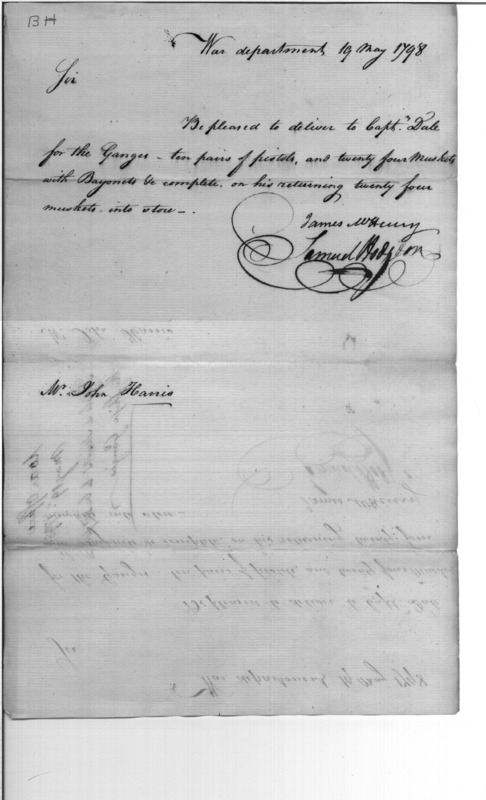 BH
War department 19 May 1798
Sir
Be pleased to deliver to Capt.n Dale
for the Ganges - ten pairs of pistols, and twenty four Muskets
with Bayonets &c complete, on his returning twenty four
muskets into store -.
James McHenry
Samuel Hodgdon
Mr. John Harris